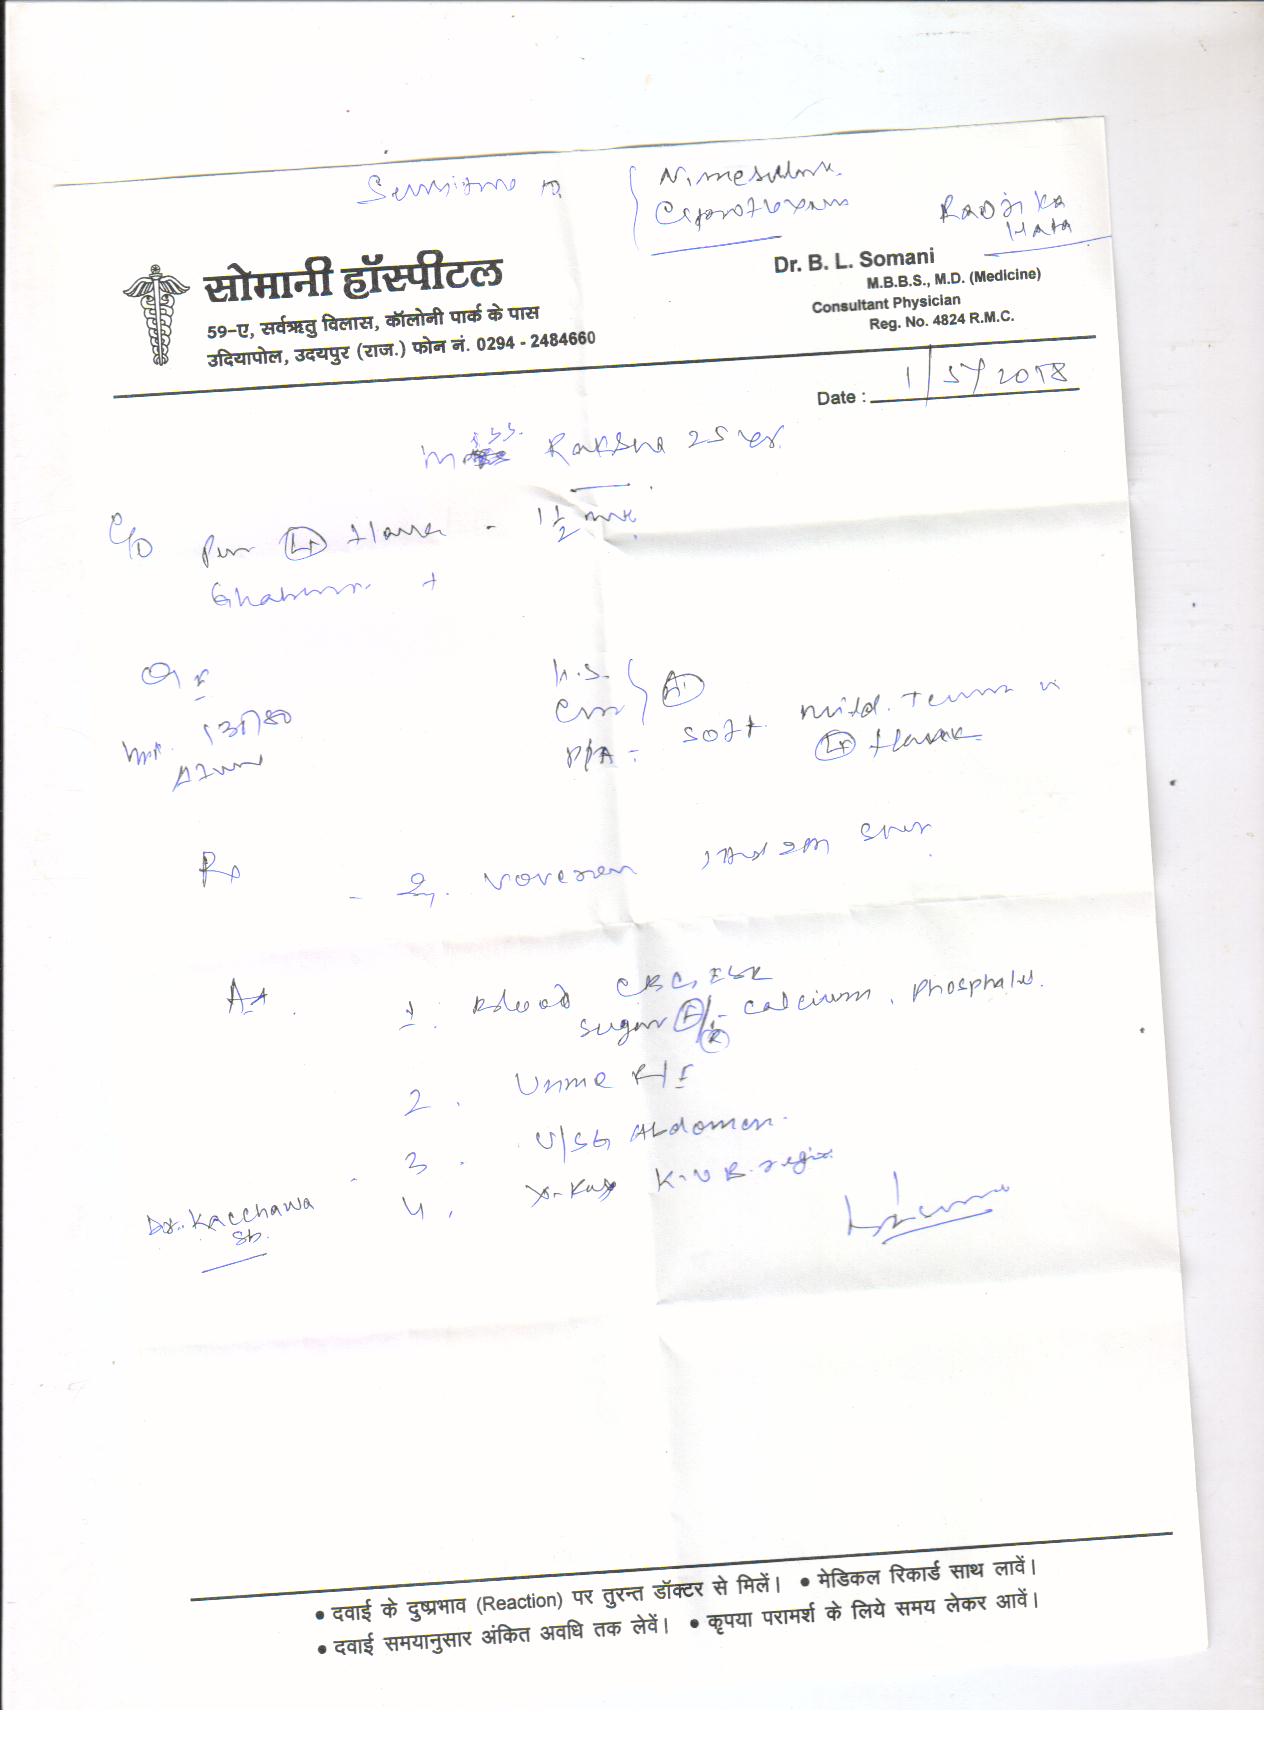 Nimesulide
Ciprofloxacin
Radhika
Hata
सोमानी हॉस्पीटल
59-ए, सर्वऋतु विलास, कॉलोनी पार्क के पास
उदियापोल, उदयपुर (राज.) फोन नं. 0294 - 2484660
Dr. B. L. Somani
M.B.B.S., M.D. (Medicine)
Consultant Physician
Reg. No. 4824 R.M.C.
Date : 1/5/2018
Miss. Raksha 25 yr.
C/o Pain Lt flank - 1 1/2
+
O/E
130/80
H.S.
P/A = Soft. mild. Tenderness in
Lt flank
Rp
- Inj. Voveran
1. Blood CBC, ESR
Sugar F/R - Calcium, Phosphates.
2. Urine R/E
3. U/SG Abdomen.
4. X-Ray K.U.B. region
Dr. Kacchawa
Sb.
• दवाई के दुष्प्रभाव (Reaction) पर तुरन्त डॉक्टर से मिलें। • मेडिकल रिकार्ड साथ लावें।
• दवाई समयानुसार अंकित अवधि तक लेवें। • कृपया परामर्श के लिये समय लेकर आवें।